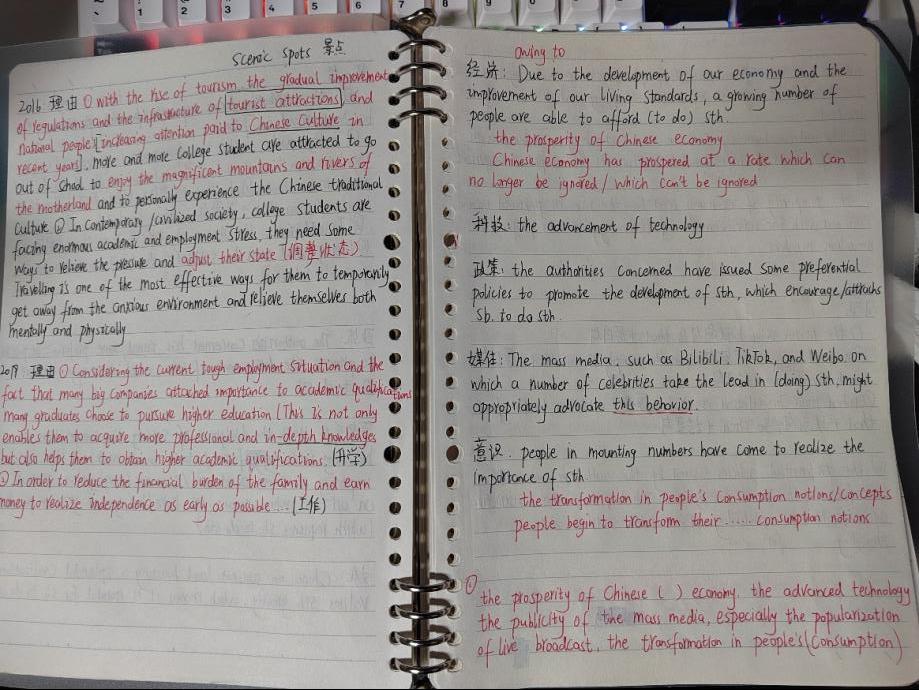 2
3
4
5
6
7
8
Scenic Spots 景点
2016 理由 ① with the rise of tourism the gradual improvement
of regulations and the infrastructure of [tourist attractions], and
national people [increasing attention paid to Chinese Culture in
recent years], more and more college student are attracted to go
out of school to enjoy the magnificent mountains and rivers of
the motherland and to personally experience the Chinese traditional
culture ② In contemporary /civilized society, college students are
facing enormous academic and employment stress, they need some
ways to relieve the pressure and adjust their state (调整状态)
Travelling is one of the most effective ways for them to temporarily
get away from the anxious environment and relieve themselves both
mentally and physically
2019 理由 ① Considering the current tough employment situation and the
fact that many big companies attached importance to academic qualifications
many graduates choose to pursure higher education (This is not only
enables them to acquire more professional and in-depth knowledges
but also helps them to obtain higher academic qualifications. (升学)
② In order to reduce the financial burden of the family and earn
money to realize independence as early as possible .... (工作)
owing to
经济: Due to the development of our economy and the
improvement of our living standards, a growing number of
people are able to afford (to do) sth.
the prosperity of Chinese economy
Chinese economy has prospered at a rate which can
no longer be ignored / which can't be ignored
科技: the advancement of technology
政策: the authorities concerned have issued some preferential
policies to promote the development of sth, which encourage/attracts
sb. to do sth.
媒体: The mass media, such as Bilibili, TikTok, and Weibo. on
which a number of celebrities take the lead in (doing) sth, might
appropriately advocate this behavior.
意识. people in mounting numbers have come to realize the
importance of sth
the transformation in people's consumption notions/concepts
people begin to transform their ...... consumption notions
①
the prosperity of Chinese ( ) economy, the advanced technology
the publicity of the mass media, especially the popularization
of live broadcast, the transformation in people's (consumption)